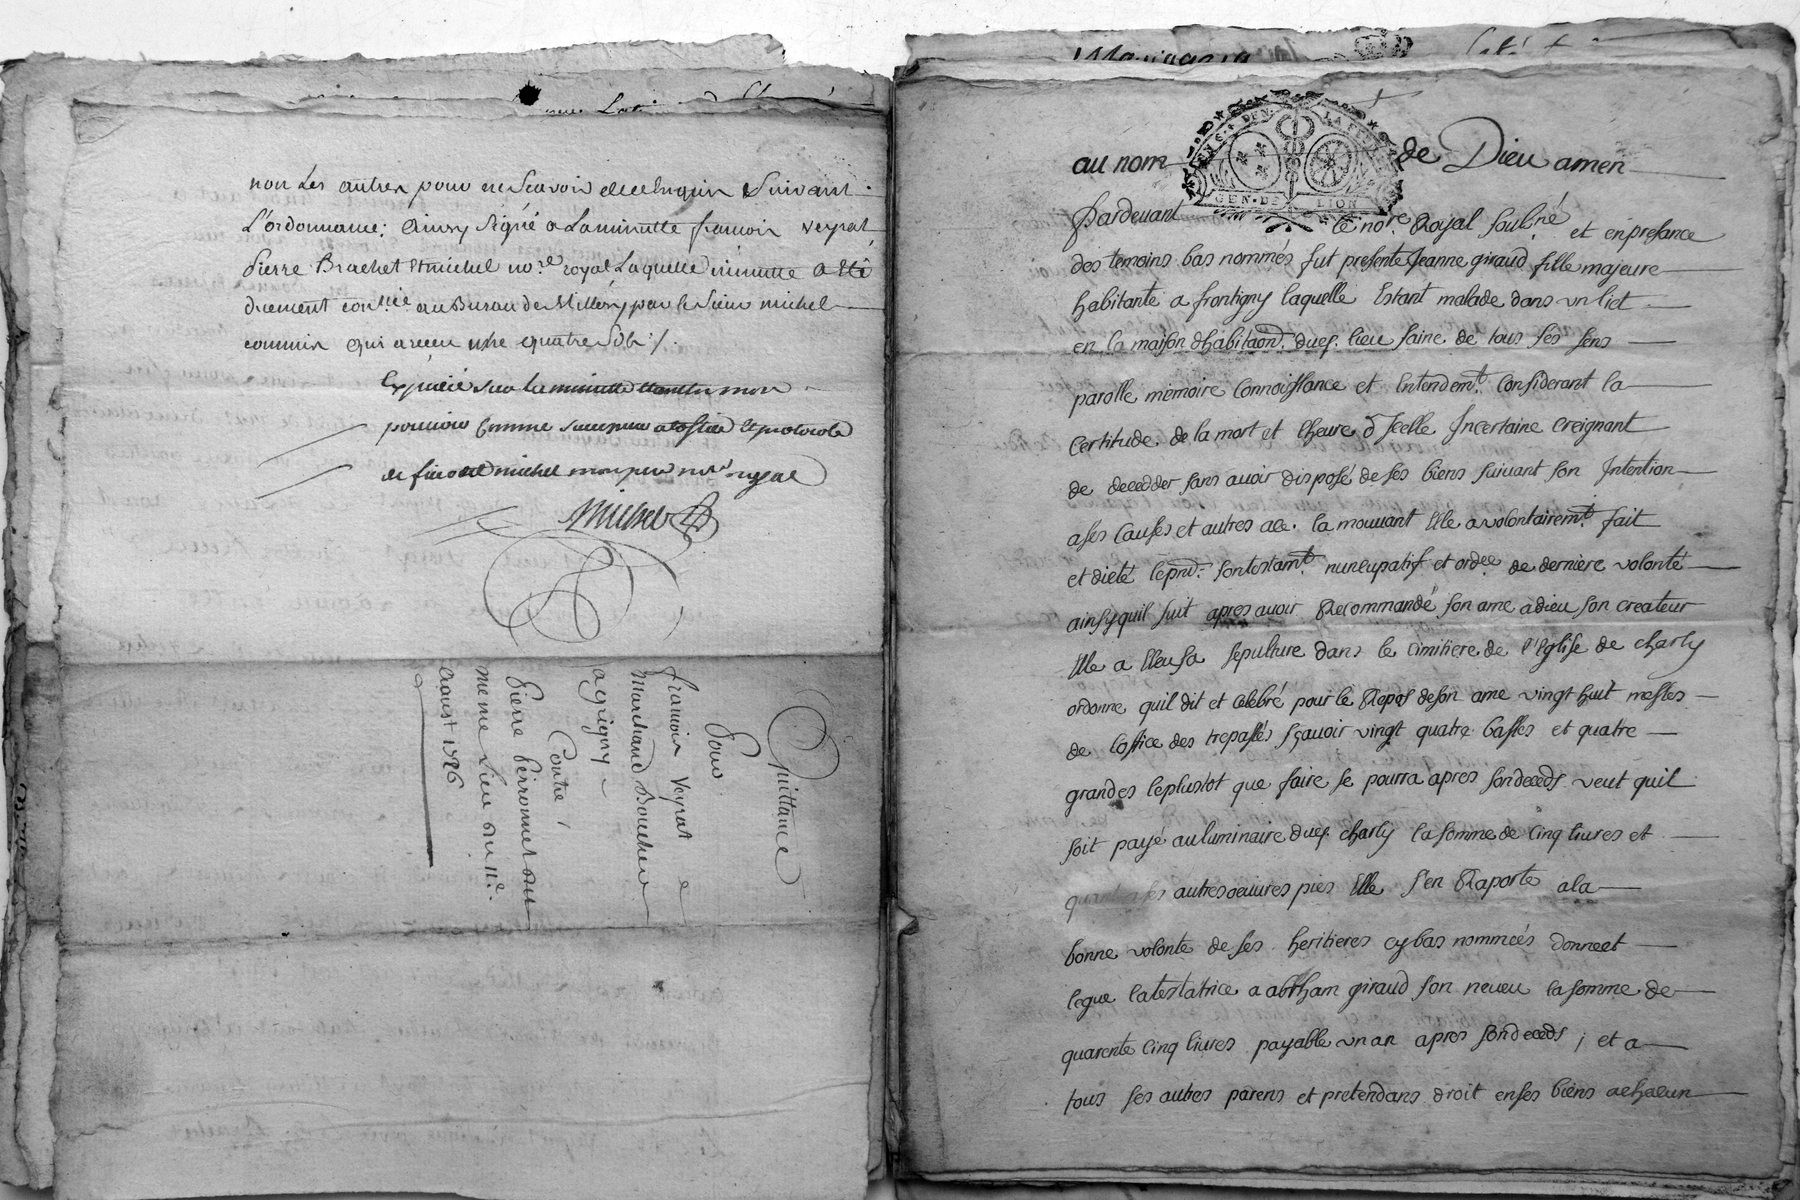 non les autres pour ne scavoir de ce enquis suivant
L'ordonnance; Ainsy signé a Laminutte francois veyrat
pierre Brachet et michel no.re royal Laquelle minutte a eté
duement con.llée au Bureau de Millery par le sieur michel
commis qui a receu neuf quatre sols /.
Expedié sur la minutte mon
pouvoir comme successeur a loffice et protocole
de feu michel mon pere no.re royal
Michel
Quittance
Pour
francois Veyrat
Marchand Boucher
a grigny
Contre
Pierre Peronnet dud.
meme Lieu du 11e
Aoust 1726
Mariage
au nom de Dieu amen
GEN. DE LION
Pardevant le no.re Royal soub.né et en presance
des temoins bas nommés fut presente Jeanne giraud fille majeure
habitante a frontigny laquelle Estant malade dans un lict
en la maison dhabitaon. dud. lieu saine de tous ses sens
parolle memoire Connoissance et Entendem.t Considerant la
Certitude de la mort et lheure dIcelle Incertaine Creignant
de decedder sans avoir disposé de ses biens suivant son Intention
a ses Causes et autres ace. la mouvant Elle a volontairem.t fait
et dicté le pnt. son testam.t nuncupatif et ord.ce de derniere volonté
ainsy quil suit apres avoir Recommandé son ame a dieu son createur
Elle a Eleu sa sepulture dans le cimitiere de l'Eglise de charly
ordonne quil dit et celebré pour le Repos de son ame vingt huit messes
de loffice des trepassés sçavoir vingt quatre basses et quatre
grandes le plustot que faire se pourra apres son deceds veut quil
soit payé au luminaire dud. charly la somme de Cinq livres et
quant a ses autres oeuvres pies Elle s'en Raporte a la
bonne volonte de ses heritieres cy bas nommées donne et
legue la testatrice a abrham giraud son neveu la somme de
quarente cinq livres payable un an apres son deceds ; et a
tous ses autres parens et pretendans droit en ses biens a chacun